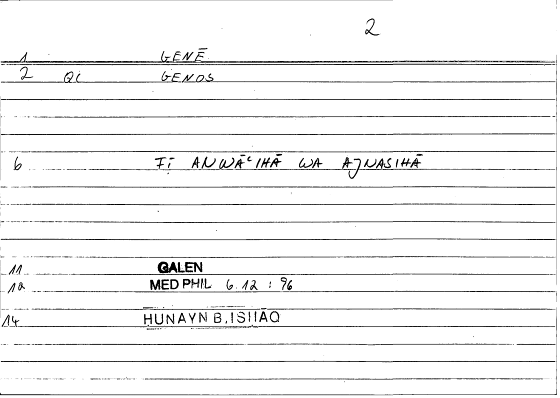 2
1 GENĒ
2 QI GENOS
6 FĪ ANWĀʿIHĀ WA AJNASIHĀ
11 GALEN
12 MED PHIL 6.12 : 96
14 HUNAYN B. ISHĀQ